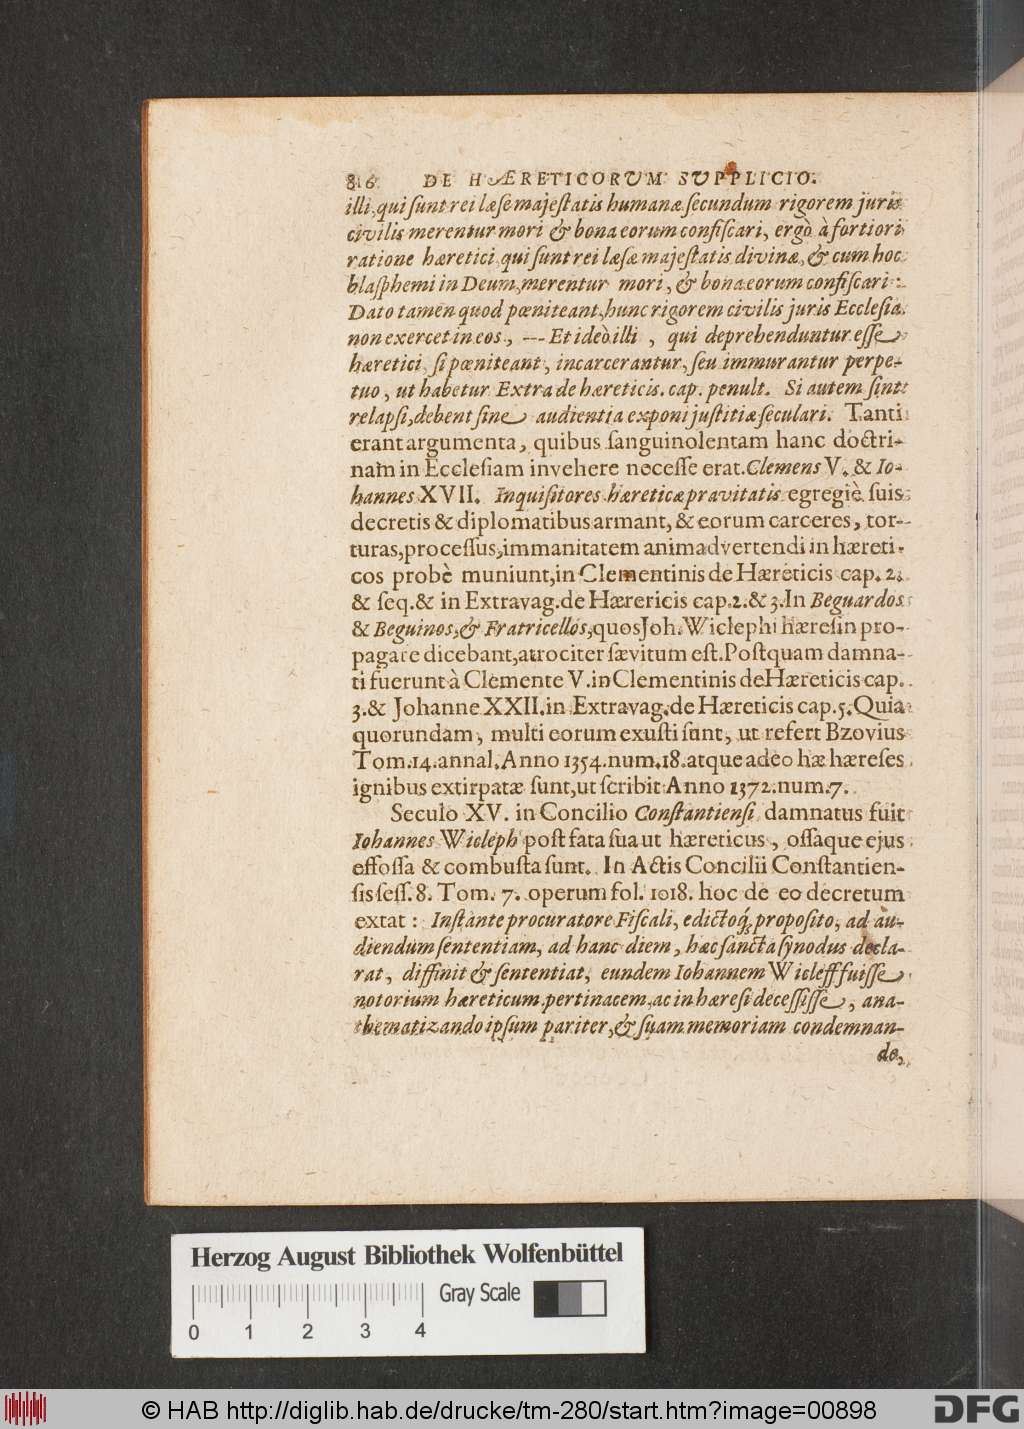 816 DE HÆRETICORUM SUPPLICIO.
illi, qui sunt rei læse majestatis humanæ secundum rigorem juris
civilis merentur mori & bona eorum confiscari, ergò à fortiori
ratione hæretici, qui sunt rei læsæ majestatis divinæ, & cum hoc
blasphemi in Deum, merentur mori, & bona eorum confiscari:
Dato tamen quod pœniteant, hunc rigorem civilis juris Ecclesia
non exercet in eos, --- Et ideò illi, qui deprehenduntur esse
hæretici, si pœniteant, incarcerantur, seu immurantur perpe-
tuo, ut habetur Extra de hæreticis. cap. penult. Si autem sint
relapsi, debent sine audientia exponi justitiæ seculari. Tanti
erant argumenta, quibus sanguinolentam hanc doctri-
nam in Ecclesiam invehere necesse erat. Clemens V. & Io-
hannes XVII. Inquisitores hæreticæ pravitatis egregiè suis
decretis & diplomatibus armant, & eorum carceres, tor-
turas, processus, immanitatem animadvertendi in hæreti-
cos probè muniunt, in Clementinis de Hæreticis cap. 2.
& seq. & in Extravag. de Hærericis cap. 2. & 3. In Beguardos
& Beguinos, & Fratricellos, quos Joh. Wiclephi hæresin pro-
pagare dicebant, atrociter sævitum est. Postquam damna-
ti fuerunt à Clemente V. in Clementinis de Hæreticis cap.
3. & Johanne XXII. in Extravag. de Hæreticis cap. 5. Quia
quorundam, multi eorum exusti sunt, ut refert Bzovius
Tom. 14. annal. Anno 1354. num. 18. atque adeo hæ hæreses
ignibus extirpatæ sunt, ut scribit Anno 1372. num. 7.
Seculo XV. in Concilio Constantiensi damnatus fuit
Iohannes Wicleph post fata sua ut hæreticus, ossaque ejus
effossa & combusta sunt. In Actis Concilii Constantien-
sis sess. 8. Tom. 7. operum fol. 1018. hoc de eo decretum
extat: Instante procuratore Fiscali, edictoq́; proposito, ad au-
diendum sententiam, ad hanc diem, hæc sancta synodus decla-
rat, diffinit & sententiat, eundem Iohannem Wicleff fuisse
notorium hæreticum pertinacem, ac in hæresi decessisse, ana-
thematizando ipsum pariter, & suam memoriam condemnan-
do,
Herzog August Bibliothek Wolfenbüttel
Gray Scale
0 1 2 3 4
© HAB http://diglib.hab.de/drucke/tm-280/start.htm?image=00898
DFG